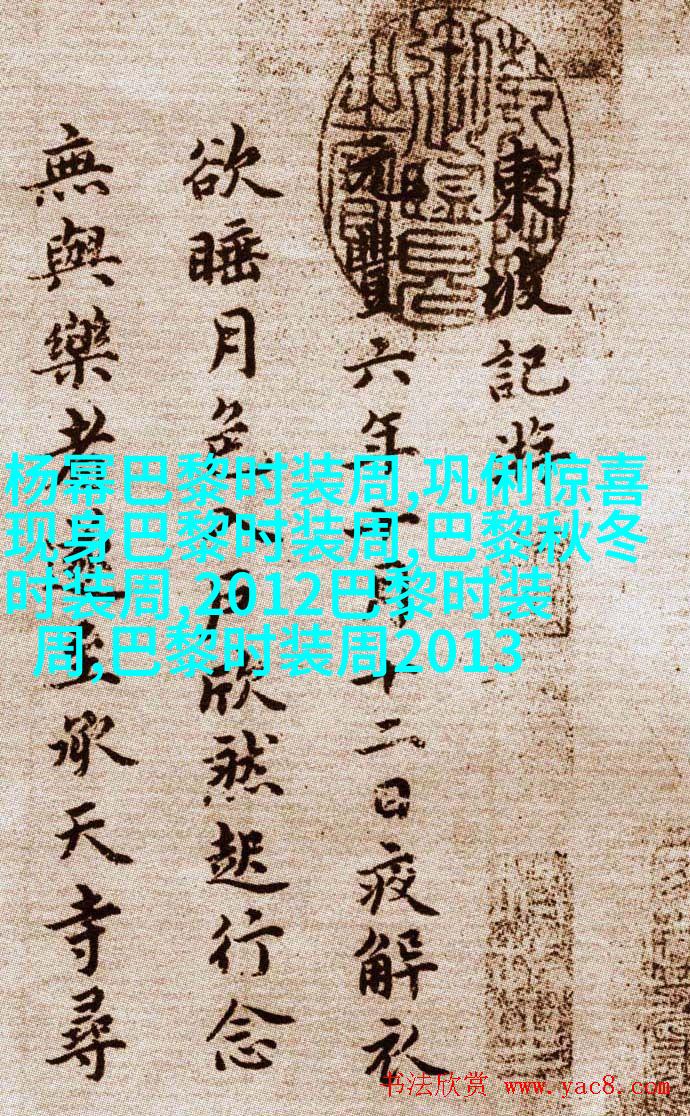 東坡記游
元豐六年十月十二日夜解衣
欲睡月色入戶欣然起行念
無與樂者遂至承天寺尋
杨幂巴黎时装周,巩俐惊喜
现身巴黎时装周,巴黎秋冬
时装周,2012巴黎时装
周,巴黎时装周2013
书法欣赏 www.yac8.com